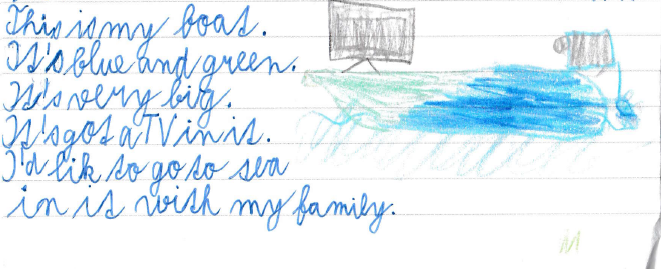 This is my boat.
It's blue and green.
It's very big.
It's got a TV in it.
I'd lik to go to sea
in it with my family.
M